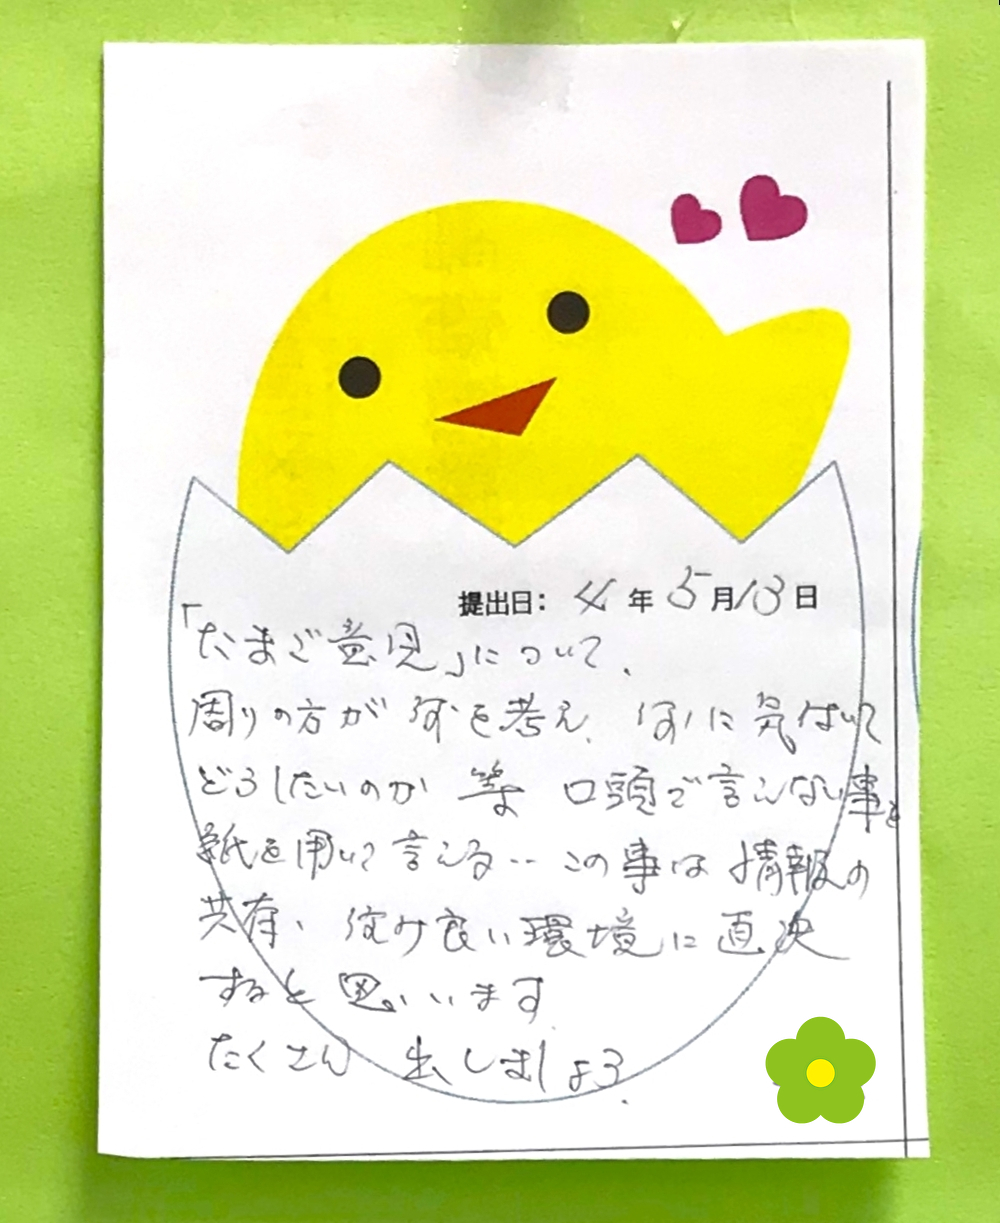 提出日: 4年5月13日
「たまご意見」について、
周りの方が何を考え、何に気付いて
どうしたいのか 等 口頭で言えない事を
紙を用いて言える‥この事は情報の
共有、住み良い環境に直決
すると思いいます
たくさん 出しましょう.